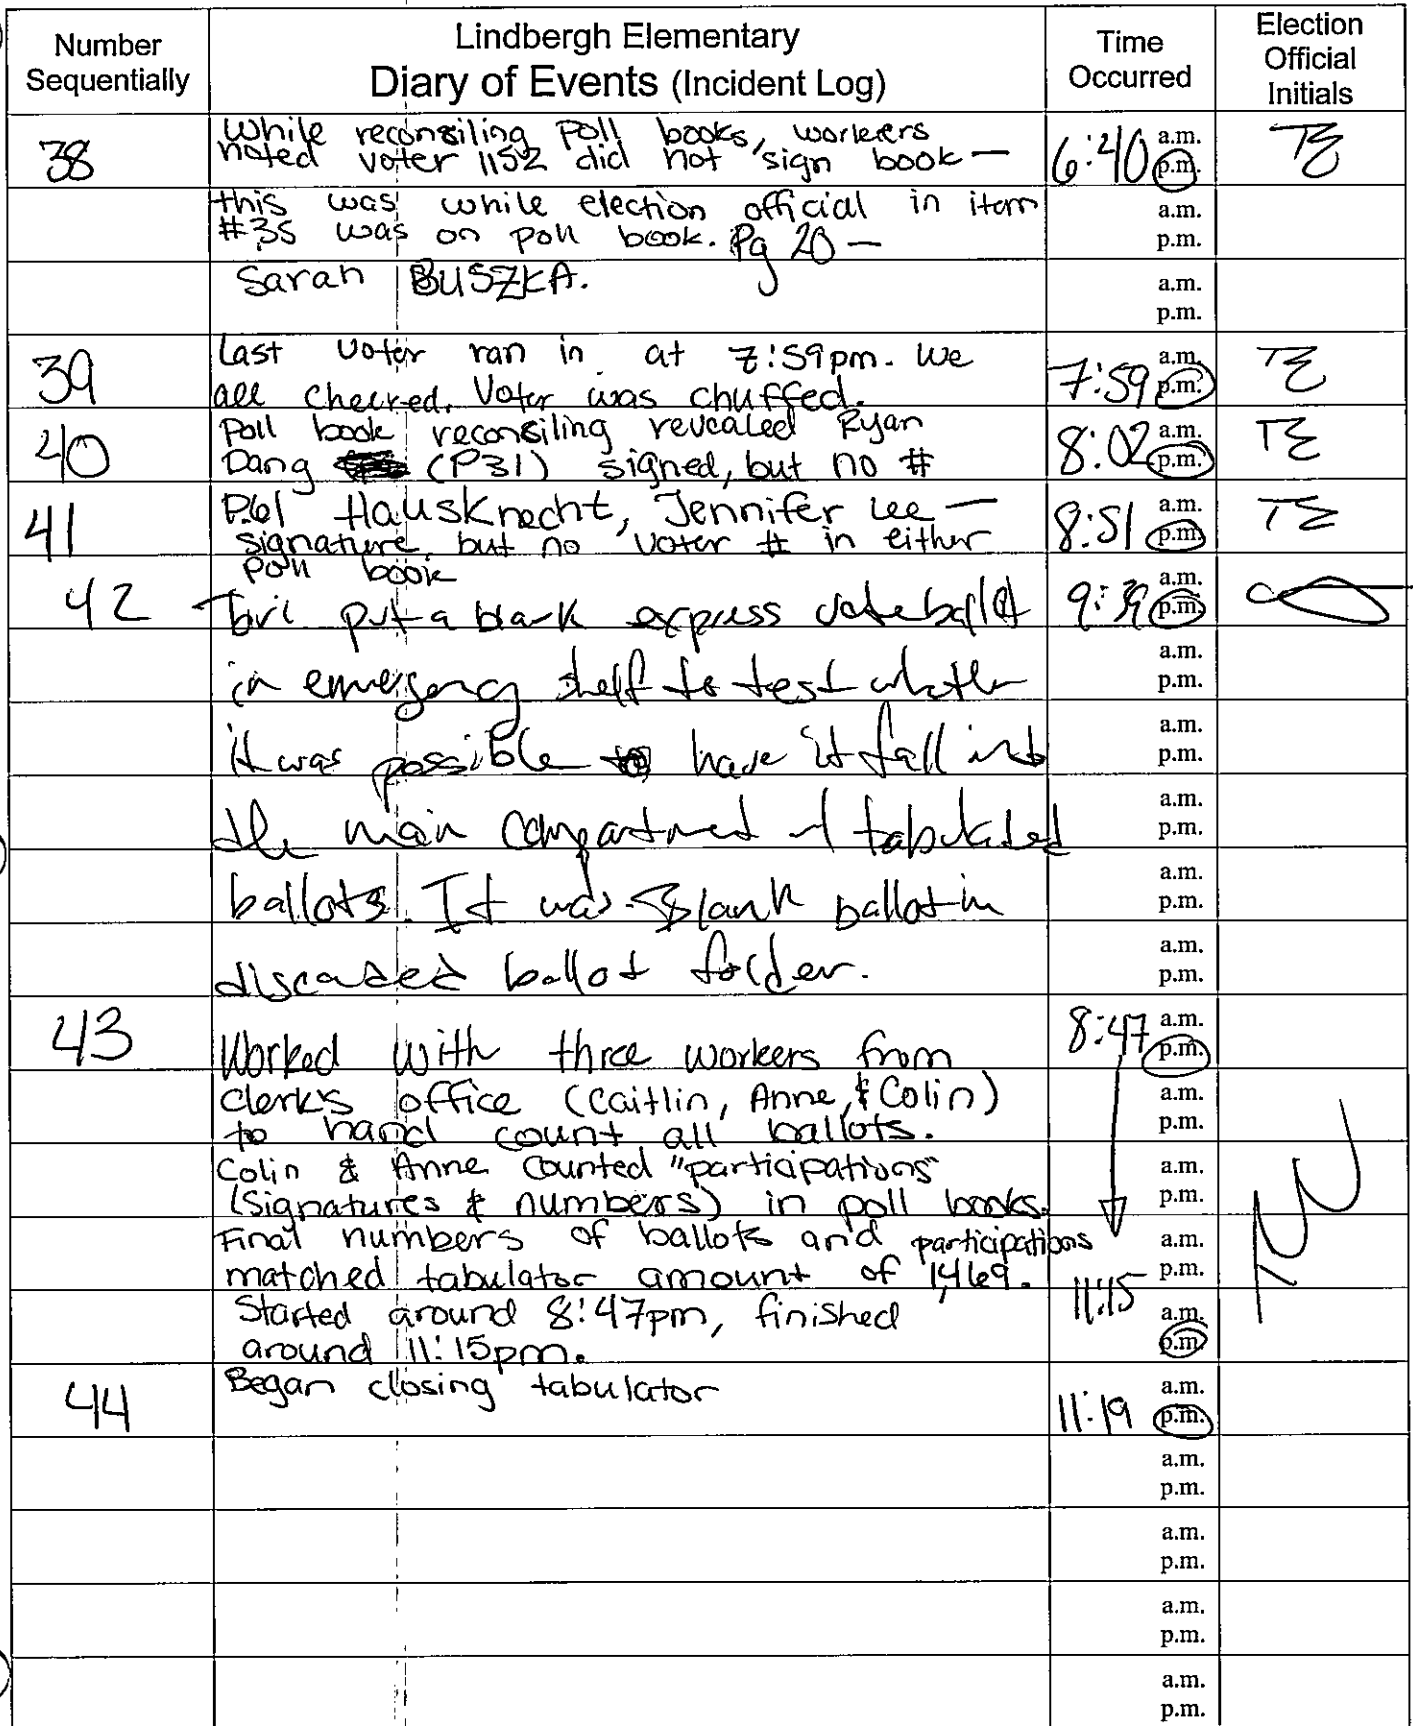 Number Sequentially
Lindbergh Elementary
Diary of Events (Incident Log)
Time Occurred
Election Official Initials
38
While reconsiling Poll books, workers
noted voter 1152 did not sign book —
6:40 a.m. p.m.
TE
this was while election official in item
#35 was on poll book. Pg 20 —
a.m. p.m.
Sarah BUSZKA.
a.m. p.m.
39
Last voter ran in at 7:59pm. We
all cheered. Voter was chuffed.
7:59 a.m. p.m.
TE
40
Poll book reconsiling revealed Ryan
Dang (P31) signed, but no #
8:02 a.m. p.m.
TE
41
P.61 Hausknecht, Jennifer Lee —
signature, but no voter # in either
poll book
8:51 a.m. p.m.
TE
42
put a blank express vote ballot
9:39 a.m. p.m.
in emergency shelf to test whether
a.m. p.m.
it was possible to have it fall into
a.m. p.m.
the main compartment of tabulated
a.m. p.m.
ballots. It was blank ballot in
a.m. p.m.
discarded ballot folder.
a.m. p.m.
43
Worked with three workers from
8:47 a.m. p.m.
clerk's office (Caitlin, Anne, & Colin)
to hand count all ballots.
a.m. p.m.
Colin & Anne counted "participations"
(signatures & numbers) in poll books.
a.m. p.m.
Final numbers of ballots and participations
matched tabulator amount of 1,469.
a.m. p.m.
Started around 8:47pm, finished
around 11:15pm.
11:15 a.m. p.m.
44
Began closing tabulator
11:19 a.m. p.m.
a.m. p.m.
a.m. p.m.
a.m. p.m.
a.m. p.m.